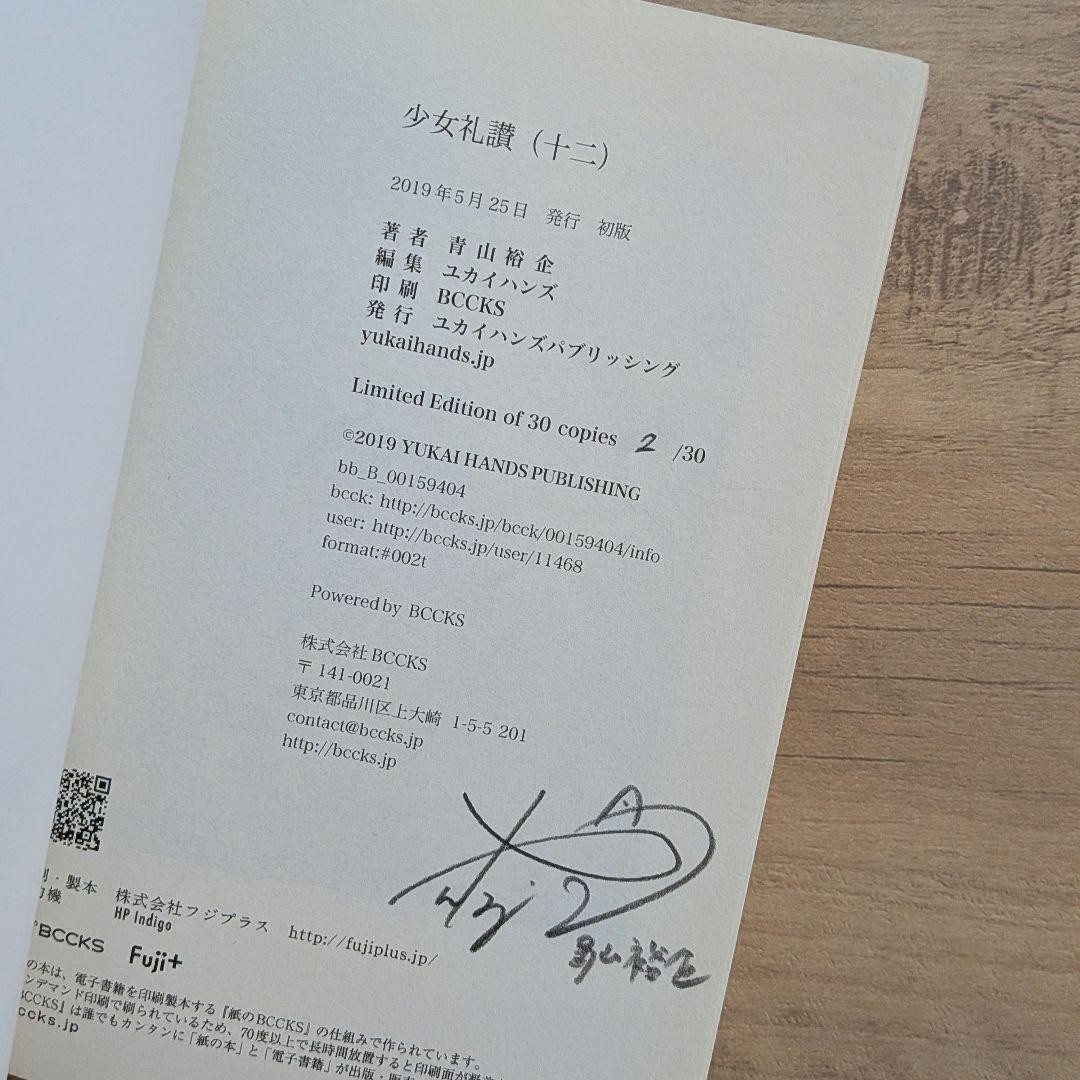 少女礼讃（十二）
2019年5月25日 発行 初版
著者 青山裕企
編集 ユカイハンズ
印刷 BCCKS
発行 ユカイハンズパブリッシング
yukaihands.jp
Limited Edition of 30 copies 2 /30
©2019 YUKAI HANDS PUBLISHING
bb_B_00159404
bcck: http://bccks.jp/bcck/00159404/info
user: http://bccks.jp/user/11468
format:#002t
Powered by BCCKS
株式会社BCCKS
〒141-0021
東京都品川区上大崎 1-5-5 201
contact@bccks.jp
http://bccks.jp
・製本 株式会社フジプラス http://fujiplus.jp/
機 HP Indigo
BCCKS Fuji+
青山裕企
の本は、電子書籍を印刷製本する『紙のBCCKS』の仕組みで作られています。
ンデマンド印刷で刷られているため、70度以上で長時間放置すると印刷面が
BCCKS』は誰でもカンタンに「紙の本」と「電子書籍」が出版・販
ccks.jp